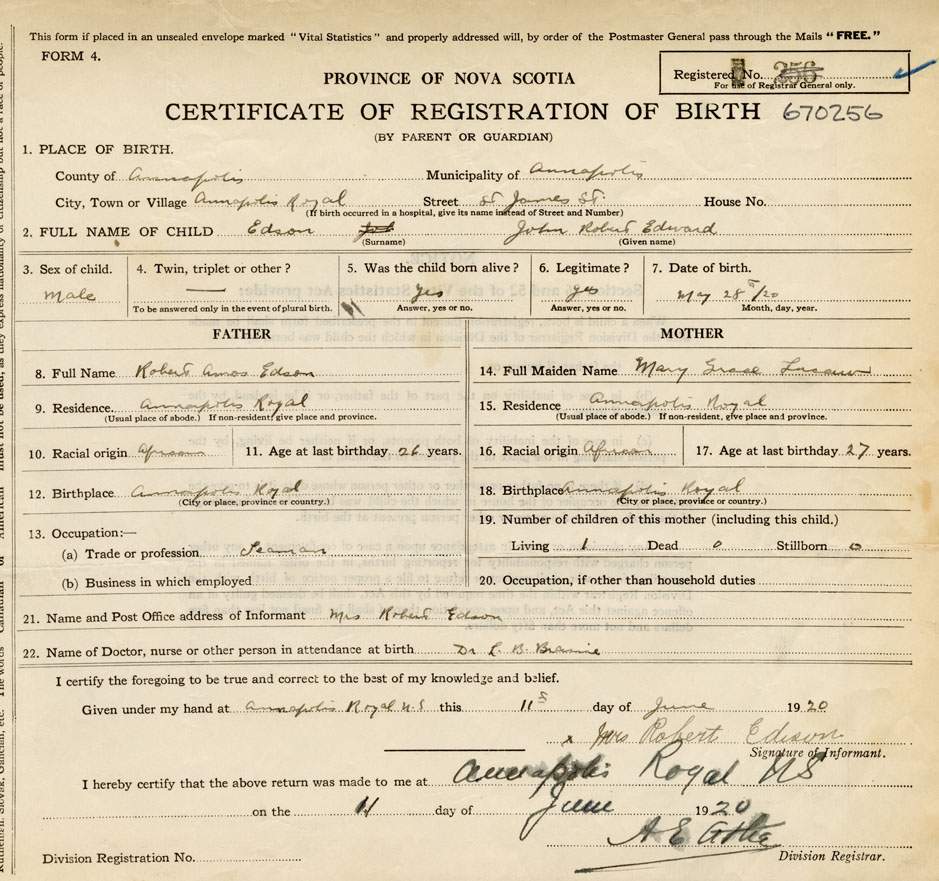 This form if placed in an unsealed envelope marked "Vital Statistics" and properly addressed will, by order of the Postmaster General pass through the Mails "FREE."
FORM 4.
Registered No. 256
For use of Registrar General only.
PROVINCE OF NOVA SCOTIA
CERTIFICATE OF REGISTRATION OF BIRTH 670256
(BY PARENT OR GUARDIAN)
1. PLACE OF BIRTH.
County of Annapolis Municipality of Annapolis
City, Town or Village Annapolis Royal Street St James St. House No.
(If birth occurred in a hospital, give its name instead of Street and Number)
2. FULL NAME OF CHILD Edson John Robert Edward
(Surname) (Given name)
3. Sex of child. 4. Twin, triplet or other? 5. Was the child born alive? 6. Legitimate? 7. Date of birth.
Male — Yes yes May 28 /20
To be answered only in the event of plural birth. Answer, yes or no. Answer, yes or no. Month, day, year.
FATHER MOTHER
8. Full Name Robert Amos Edson
14. Full Maiden Name Mary Grace
9. Residence. Annapolis Royal
(Usual place of abode.) If non-resident, give place and province.
15. Residence Annapolis Royal
(Usual place of abode.) If non-resident, give place and province.
10. Racial origin African 11. Age at last birthday 26 years.
16. Racial origin African 17. Age at last birthday 27 years.
12. Birthplace Annapolis Royal
(City or place, province or country.)
18. Birthplace Annapolis Royal
(City or place, province or country.)
13. Occupation:—
(a) Trade or profession Seaman
(b) Business in which employed
19. Number of children of this mother (including this child.)
Living 1 Dead 0 Stillborn 0
20. Occupation, if other than household duties
21. Name and Post Office address of Informant Mrs Robert Edson
22. Name of Doctor, nurse or other person in attendance at birth Dr L. B.
I certify the foregoing to be true and correct to the best of my knowledge and belief.
Given under my hand at Annapolis Royal N.S this 11 day of June 1920
x Mrs Robert Edison
Signature of Informant.
I hereby certify that the above return was made to me at Annapolis Royal NS
on the 11 day of June 1920
A E
Division Registration No. Division Registrar.